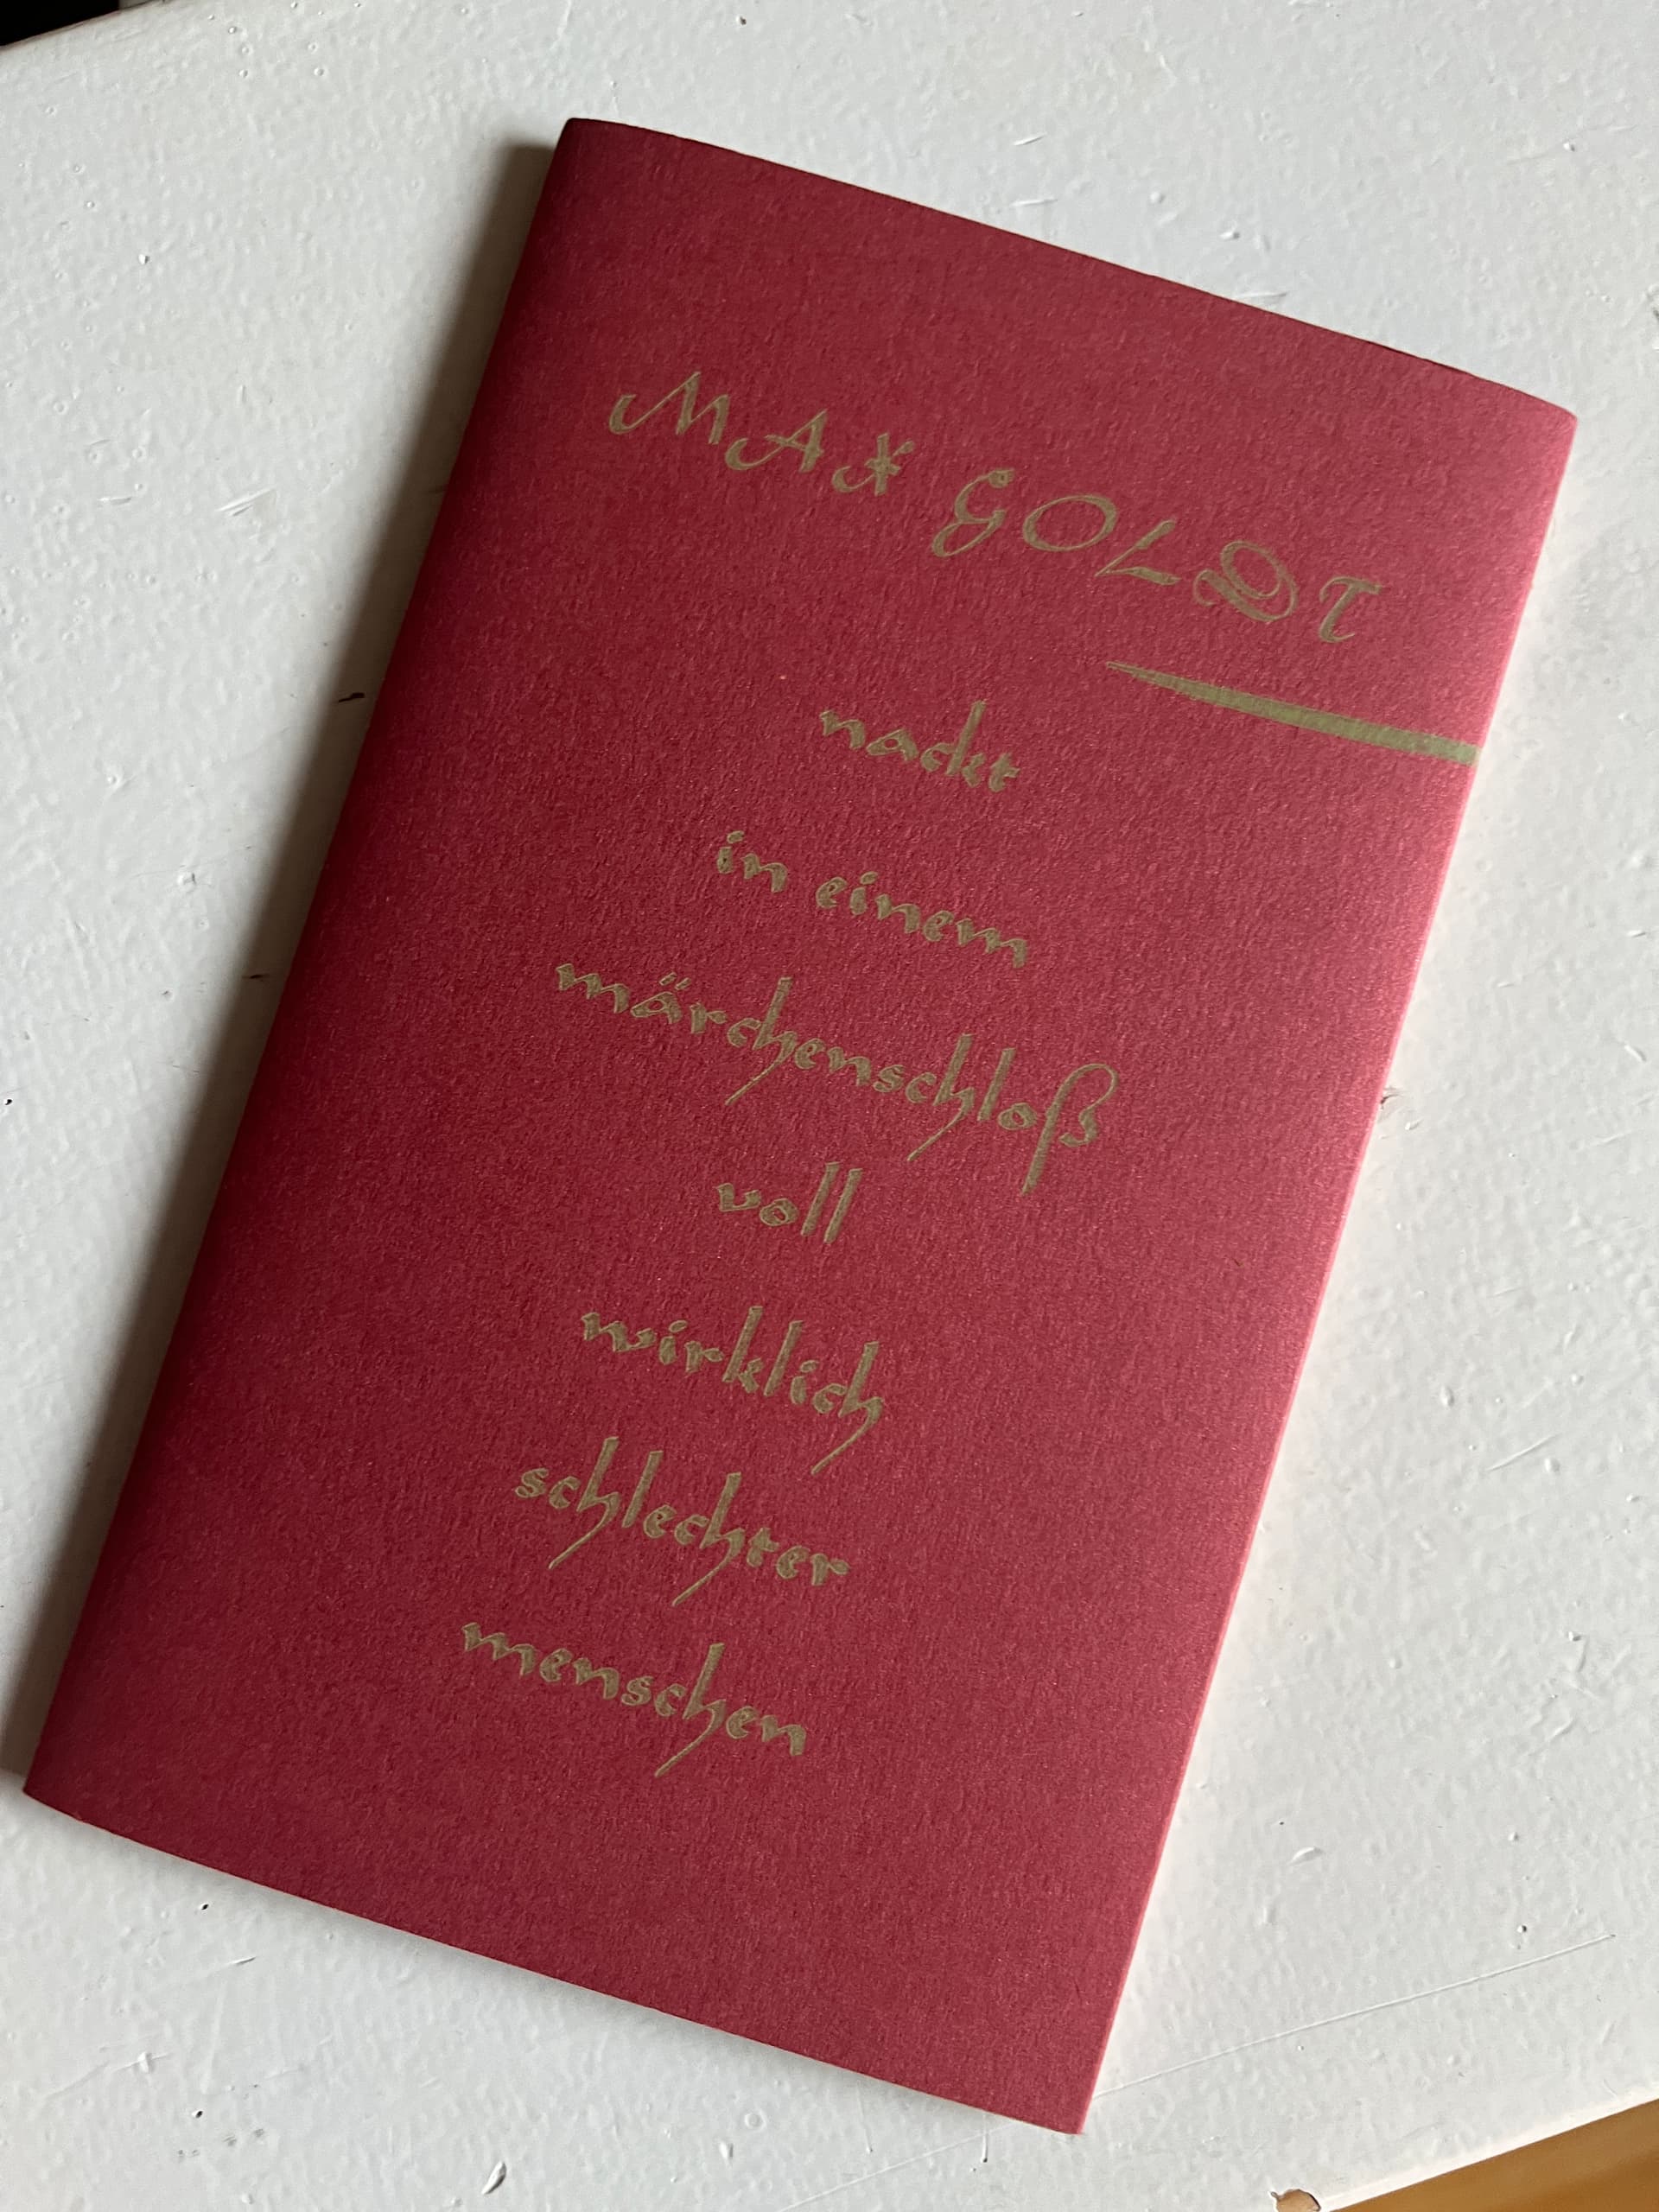 MAX GOLDT
nackt
in einem
märchenschloß
voll
wirklich
schlechter
menschen